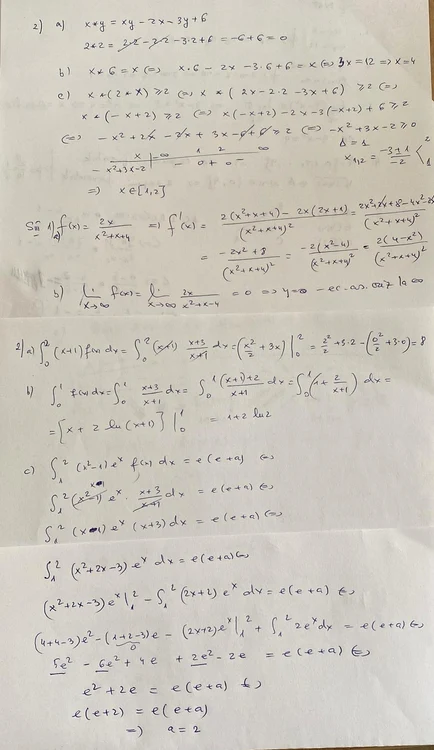 2) a) x*y = xy - 2x - 3y + 6
2*2 = 2·2 - 2·2 - 3·2 + 6 = -6+6 = 0
b) x*6 = x ⇔ x·6 - 2x - 3·6 + 6 = x ⇔ 3x = 12 ⇒ x = 4
c) x*(2*x) ≥ 2 ⇔ x*(2x - 2·2 - 3x + 6) ≥ 2 ⇔
x*(-x+2) ≥ 2 ⇔ x(-x+2) - 2x - 3(-x+2) + 6 ≥ 2
⇔ -x² + 2x - 2x + 3x - 6 + 6 ≥ 2 ⇔ -x² + 3x - 2 ≥ 0
Δ = 1
x₁,₂ = (-3±1)/(-2) < 2 1
x | -∞ 1 2 ∞
-x²+3x-2 | - 0 + 0 -
⇒ x ∈ [1,2]
SIII 1) a) f(x) = 2x/(x²+x+4) ⇒ f'(x) = (2(x²+x+4) - 2x(2x+1))/(x²+x+4)² = (2x²+2x+8-4x²-2x)/(x²+x+4)²
= (-2x²+8)/(x²+x+4)² = -2(x²-4)/(x²+x+4)² = 2(4-x²)/(x²+x+4)²
b) lim x→∞ f(x) = lim x→∞ 2x/(x²+x-4) = 0 ⇒ y=0 - ec. as. oriz la ∞
2) a) ∫₀² (x+1) f(x) dx = ∫₀² (x+1) (x+3)/(x+1) dx = (x²/2 + 3x) |₀² = 2²/2 + 3·2 - (0²/2 + 3·0) = 8
b) ∫₀¹ f(x) dx = ∫₀¹ (x+3)/(x+1) dx = ∫₀¹ ((x+1)+2)/(x+1) dx = ∫₀¹ (1 + 2/(x+1)) dx =
= [x + 2 ln(x+1)] |₀¹ = 1 + 2 ln2
c) ∫₁² (x²-1) eˣ f(x) dx = e(e+a) ⇔
∫₁² (x²-1) x-1 eˣ · (x+3)/(x+1) dx = e(e+a) ⇔
∫₁² (x-1) eˣ (x+3) dx = e(e+a) ⇔
∫₁² (x²+2x-3) eˣ dx = e(e+a) ⇔
(x²+2x-3) eˣ |₁² - ∫₁² (2x+2) eˣ dx = e(e+a) ⇔
(4+4-3)e² - (1+2-3)e - (2x+2)eˣ |₁² + ∫₁² 2eˣ dx = e(e+a) ⇔
0
5e² - 6e² + 4e + 2e² - 2e = e(e+a) ⇔
e² + 2e = e(e+a) ⇔
e(e+2) = e(e+a)
⇒ a = 2